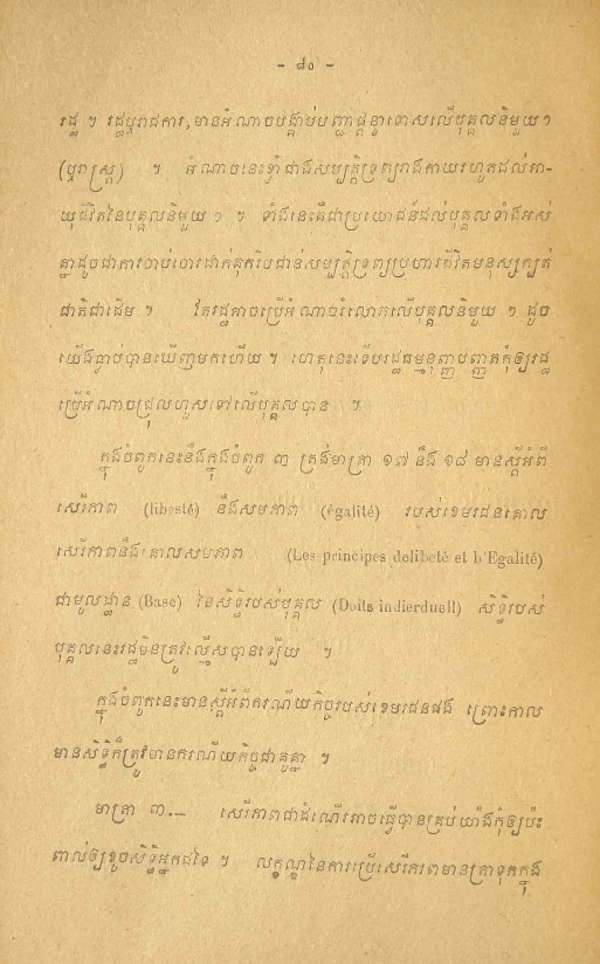 - ៨០ -
រដ្ឋ ៗ រដ្ឋឬរាជការ, មានអំណាចបង្គាប់បញ្ជាផ្ដន្ទាទោសលើបុគ្គលនិមួយៗ
(ឬរាស្ត្រ) ។ អំណាចនេះខ្លាំជាងសម្បត្តិទ្រព្យរាងកាយរហូតដល់អា-
យុជីវិតនៃបុគ្គលនិមួយ ១ ។ ទាំងនេះគឺជាប្រយោជន៍ដល់បុគ្គលទាំងអស់
គ្នាដូចជាការចាប់ចោរដាក់គុករឹបជាន់សម្បត្តិទ្រព្យប្រហារជីវិតមនុស្សក្បត់
ជាតិជាដើម ។ តែរដ្ឋអាចប្រើអំណាចរំលោភលើបុគ្គលនិមួយ ៗ ដូច
យើងធ្លាប់បានឃើញមកហើយ ។ ហេតុនេះទើបរដ្ឋធម្មនុញ្ញបញ្ញតកុំឲ្យរដ្ឋ
ប្រើអំណាចជ្រុលហួសទៅលើបុគ្គលបាន ។
ក្នុងចំពូកនេះនឹងក្នុងចំពូក ៣ ត្រង់មាត្រា ១៧ នឹង ១៨ មានស្ដីអំពី
សេរីភាព (libesté) នឹងសមភាព (égalité) របស់ខេមរជនគោល
សេរីភាពនឹងគោលសមភាព (Les principes delibeté et b'Egalité)
ជាមូលដ្ឋាន (Base) នៃសិទ្ធិរបស់បុគ្គល (Doits indierduell) សិទ្ធិរបស់
បុគ្គលនេះរដ្ឋមិនត្រូវល្មើសបានឡើយ ។
ក្នុងចំពូកនេះមានស្ដីអំពីករណីយកិច្ចរបស់ខេមរជនផង ព្រោះកាល
មានសិទ្ធិក៏ត្រូវមានករណីយកិច្ចជាគូគ្នា ។
មាត្រា ៣.— សេរីភាពជាដំណើរអាចធ្វើបានគ្រប់យ៉ាងកុំឲ្យប៉ះ
ពាល់ឲ្យខូចសិទ្ធិអ្នកដទៃ ។ លក្ខណ្ឌនៃការប្រើសេរីភាពមានត្រាទុកក្នុង